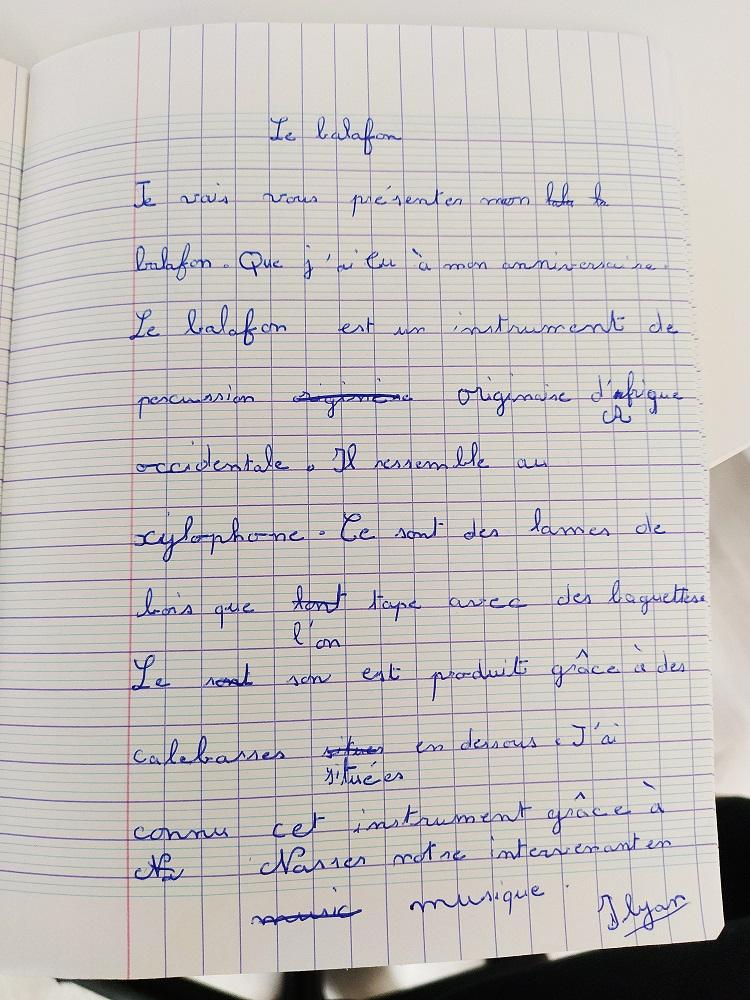 Le balafon
Je vais vous présenter mon
balafon. Que j'ai eu à mon anniversaire.
Le balafon est un instrument de
percussion originaire d'Afrique
occidentale. Il ressemble au
xylophone. Ce sont des lames de
bois que l'on tape avec des baguettes.
Le son est produit grâce à des
calebasses situées en dessous. J'ai
connu cet instrument grâce à
Nasser notre intervenant en
musique.
Ilyan